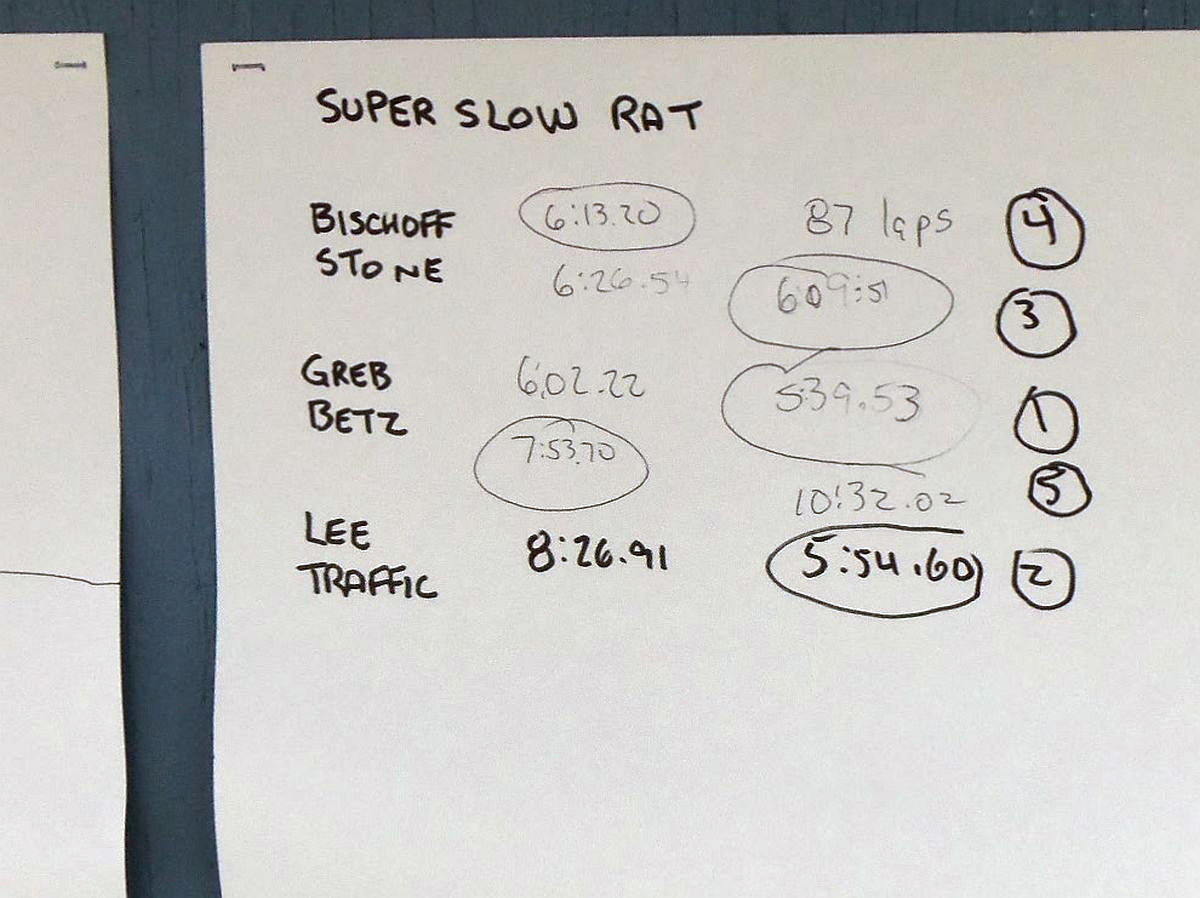 SUPER SLOW RAT
BISCHOFF 6:13.20 87 laps 4
STONE 6:26.54 6:09:51 3
GREB 6:02.22 5:39.53 1
BETZ 7:53.70 10:32.02 5
LEE
TRAFFIC 8:26.91 5:54.60 2